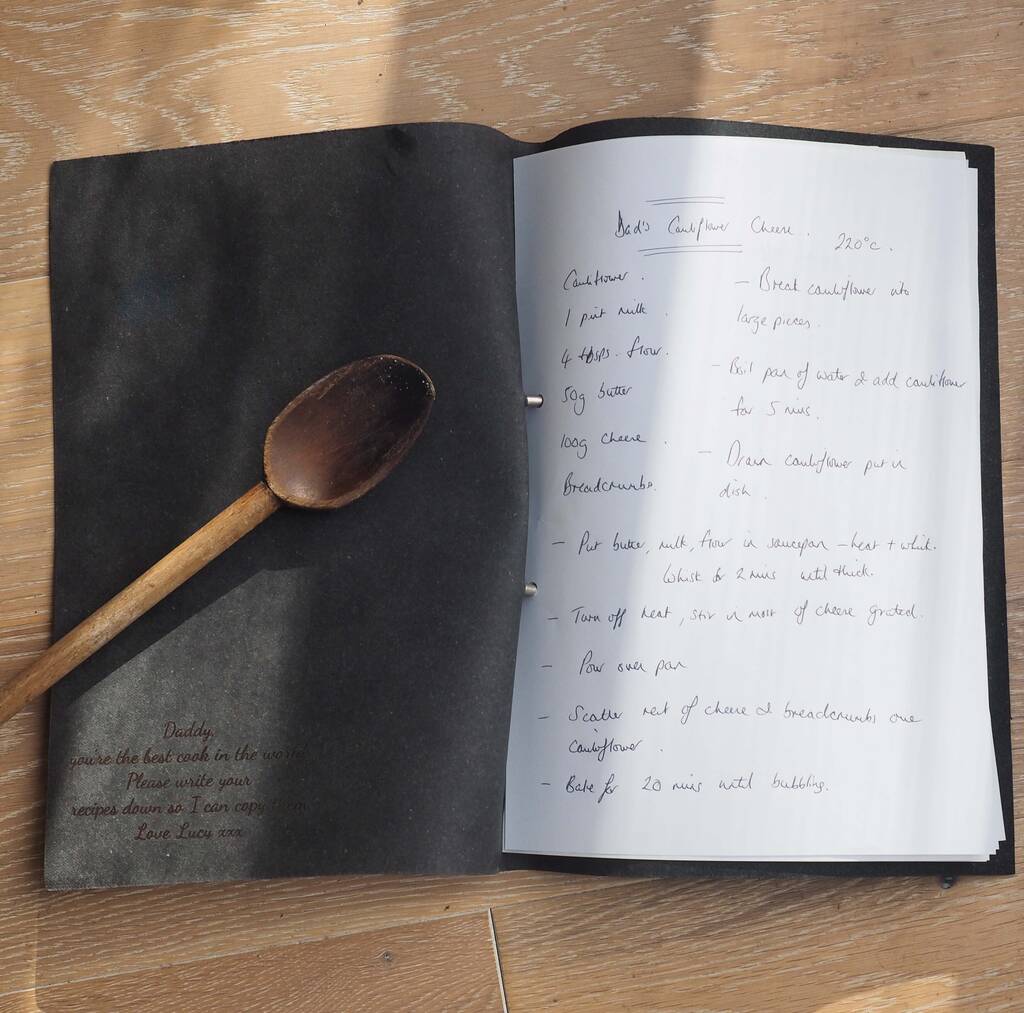 Daddy,
you're the best cook in the world
Please write your
recipes down so I can copy them
Love Lucy xxx
Dad's Cauliflower Cheese. 220°c.
Cauliflower.
1 pint milk.
4 tbsps. flour.
50g butter
100g cheese.
Breadcrumbs.
- Break cauliflower into
large pieces.
- Boil pan of water & add cauliflower
for 5 mins.
- Drain cauliflower put in
dish.
- Put butter, milk, flour in saucepan - heat + whisk.
Whisk for 2 mins until thick.
- Turn off heat, stir in most of cheese grated.
- Pour over pan
- Scatter rest of cheese & breadcrumbs over
cauliflower.
- Bake for 20 mins until bubbling.